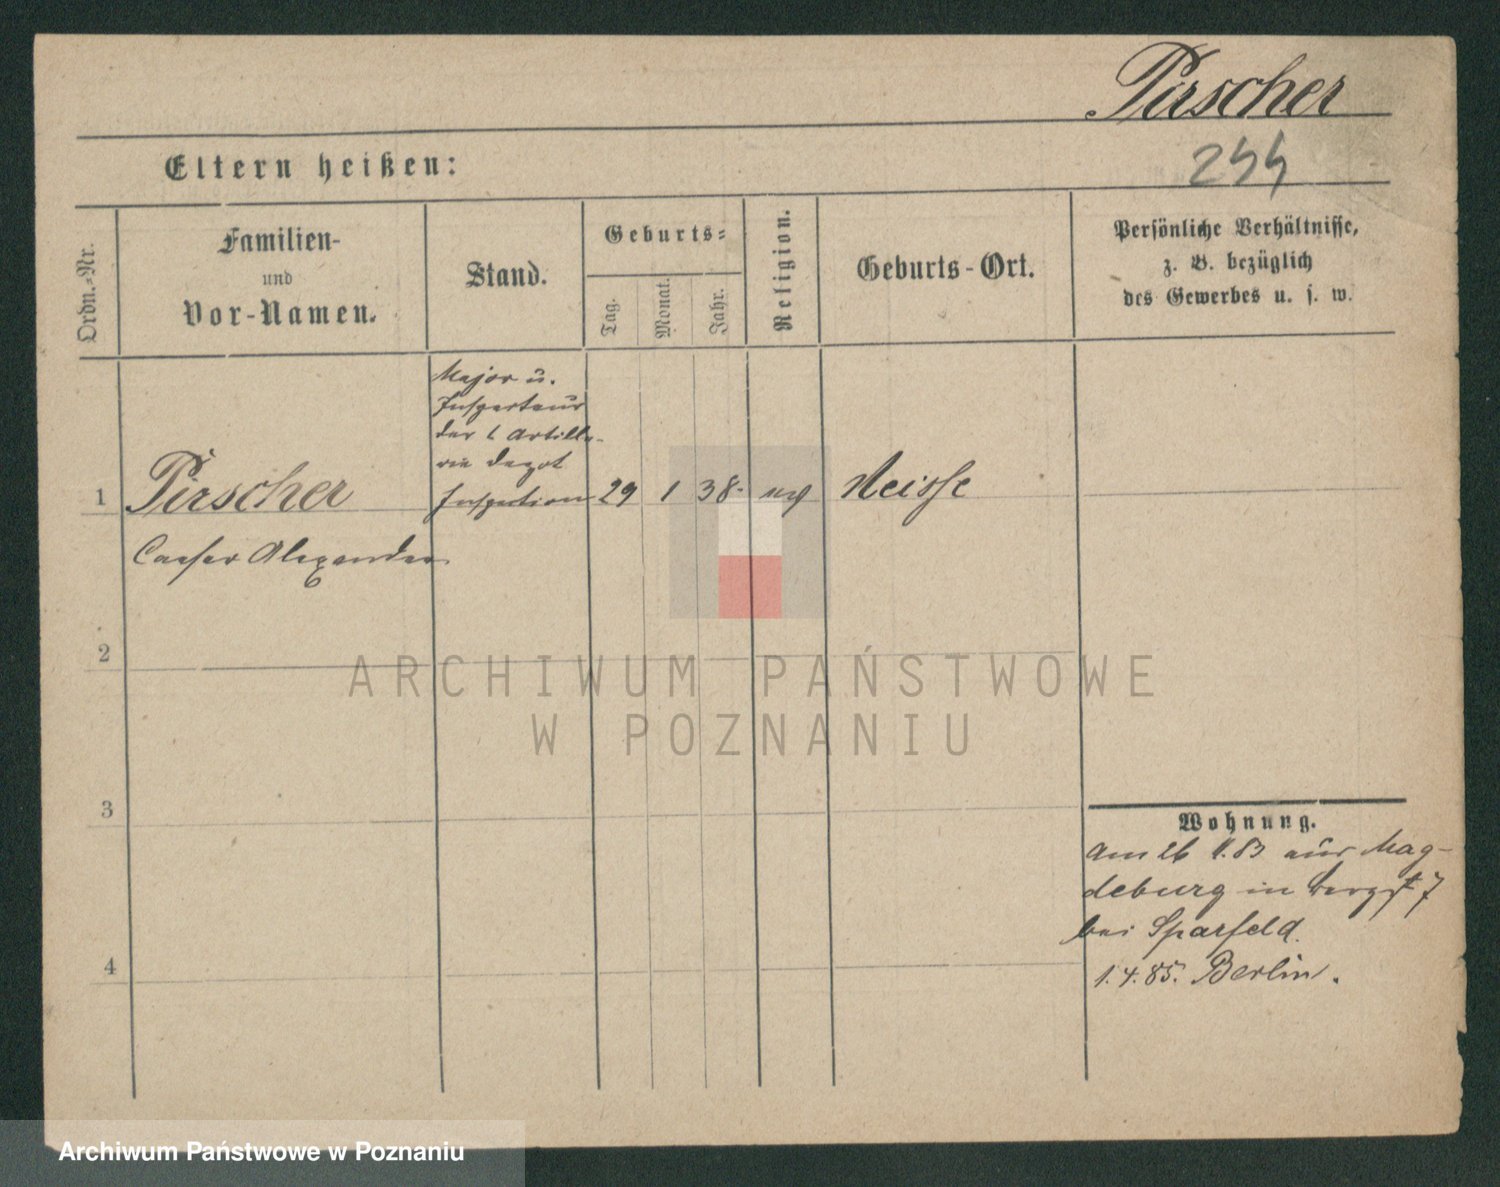 Pirscher
244
Eltern heißen:
Ordn.-Nr.
Familien-
und
Vor-Namen.
Stand.
Geburts-
Tag.
Monat.
Jahr.
Religion.
Geburts-Ort.
Persönliche Verhältnisse,
z. B. bezüglich
des Gewerbes u. s. w.
Major u.
Inspecteur
der 1 Artille-
rie Depot
Inspection
1 Pirscher 29 1 38. Neisse
Caesar Alexander
2
3
4
Wohnung.
Am 26 83 aus Mag-
deburg in 7
bei Sparfeld.
1.4.85. Berlin.
ARCHIWUM PAŃSTWOWE
W POZNANIU
Archiwum Państwowe w Poznaniu